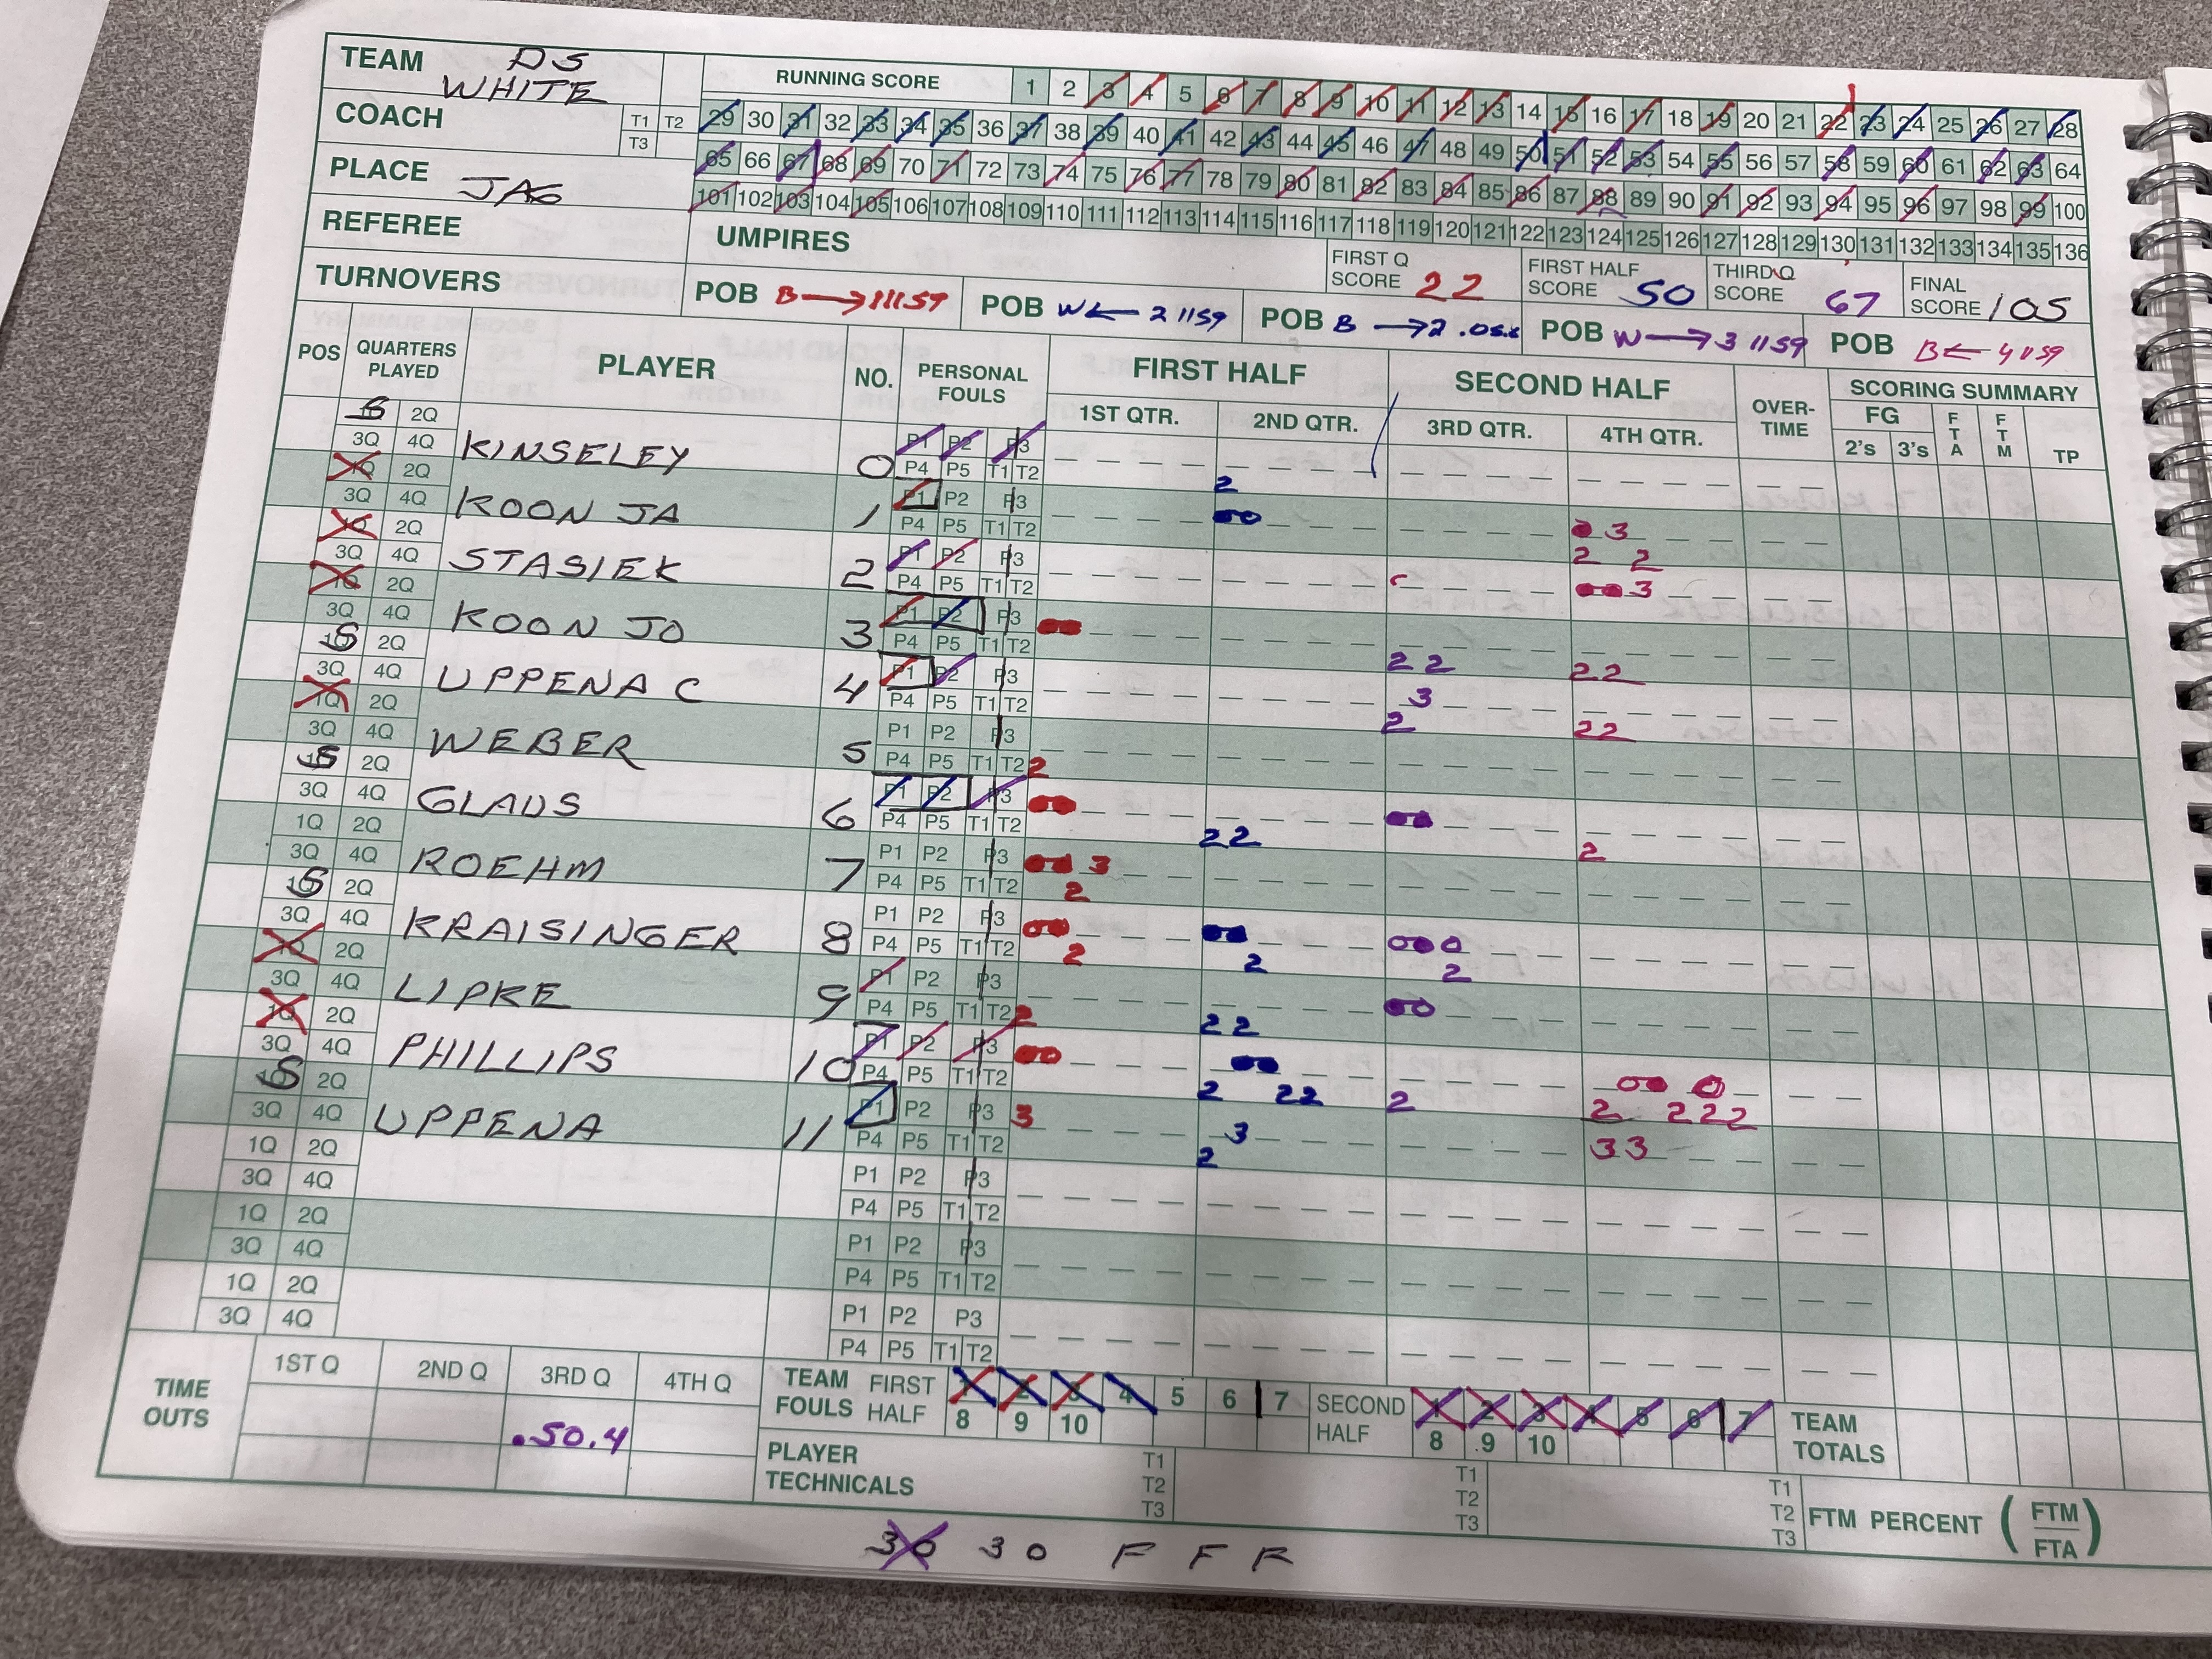 TEAM DS WHITE
RUNNING SCORE 1 2 3 4 5 6 7 8 9 10 11 12 13 14 15 16 17 18 19 20 21 22 23 24 25 26 27 28
COACH T1 T2 T3
29 30 31 32 33 34 35 36 37 38 39 40 41 42 43 44 45 46 47 48 49 50 51 52 53 54 55 56 57 58 59 60 61 62 63 64
65 66 67 68 69 70 71 72 73 74 75 76 77 78 79 80 81 82 83 84 85 86 87 88 89 90 91 92 93 94 95 96 97 98 99 100
PLACE JAG
101 102 103 104 105 106 107 108 109 110 111 112 113 114 115 116 117 118 119 120 121 122 123 124 125 126 127 128 129 130 131 132 133 134 135 136
REFEREE
UMPIRES
FIRST Q SCORE 22
FIRST HALF SCORE 50
THIRD Q SCORE 67
FINAL SCORE 105
TURNOVERS
POB B → 1 1159
POB W ← 2 1159
POB B → 2 .05.8
POB W → 3 1159
POB B ← 4 1159
POS QUARTERS PLAYED PLAYER NO. PERSONAL FOULS FIRST HALF SECOND HALF OVER-TIME SCORING SUMMARY
1ST QTR. 2ND QTR. 3RD QTR. 4TH QTR. FG FTA FTM TP
2's 3's
S 2Q 3Q 4Q KINSELEY 0 P1 P2 P3 P4 P5 T1 T2
1Q 2Q 3Q 4Q KOON JA 1 P1 P2 P3 P4 P5 T1 T2 2 3
1Q 2Q 3Q 4Q STASIEK 2 P1 P2 P3 P4 P5 T1 T2 2 2 3
1Q 2Q 3Q 4Q KOON JO 3 P1 P2 P3 P4 P5 T1 T2
S 2Q 3Q 4Q UPPENA C 4 P1 P2 P3 P4 P5 T1 T2 2 2 3 2 2
1Q 2Q 3Q 4Q WEBER 5 P1 P2 P3 P4 P5 T1 T2 2 2 2
S 2Q 3Q 4Q GLAUS 6 P1 P2 P3 P4 P5 T1 T2 2
1Q 2Q 3Q 4Q ROEHM 7 P1 P2 P3 P4 P5 T1 T2 3 2 2 2
S 2Q 3Q 4Q KRAISINGER 8 P1 P2 P3 P4 P5 T1 T2 2
1Q 2Q 3Q 4Q LIPKE 9 P1 P2 P3 P4 P5 T1 T2 2 2 2
1Q 2Q 3Q 4Q PHILLIPS 10 P1 P2 P3 P4 P5 T1 T2 2 2 2
S 2Q 3Q 4Q UPPENA 11 P1 P2 P3 P4 P5 T1 T2 3 2 2 2 3 2 2 2 2 2 3 3
1Q 2Q 3Q 4Q P1 P2 P3 P4 P5 T1 T2 2
1Q 2Q 3Q 4Q P1 P2 P3 P4 P5 T1 T2
1Q 2Q 3Q 4Q P1 P2 P3 P4 P5 T1 T2
TIME OUTS 1ST Q 2ND Q 3RD Q 4TH Q
.50.4
TEAM FOULS FIRST HALF 1 2 3 4 5 6 7 8 9 10
SECOND HALF 1 2 3 4 5 6 7 8 9 10
TEAM TOTALS
PLAYER TECHNICALS T1 T2 T3 T1 T2 T3 T1 T2 T3
FTM PERCENT (FTM/FTA)
30 30 F F F